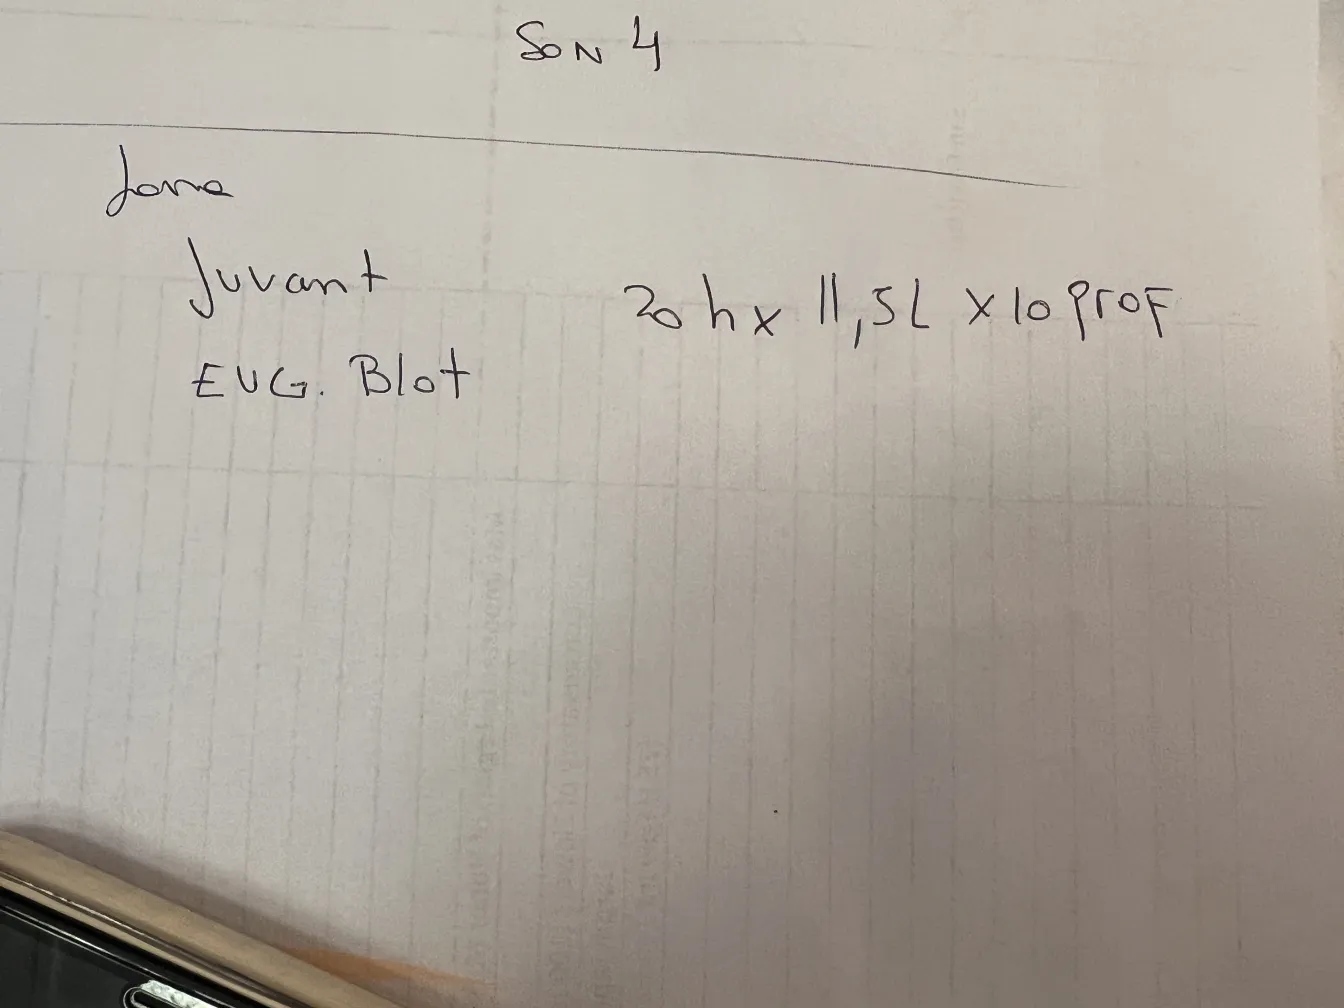 SON 4
Jone
Juvant
EUG. Blot
20 h x 11,5L x 10 Prof